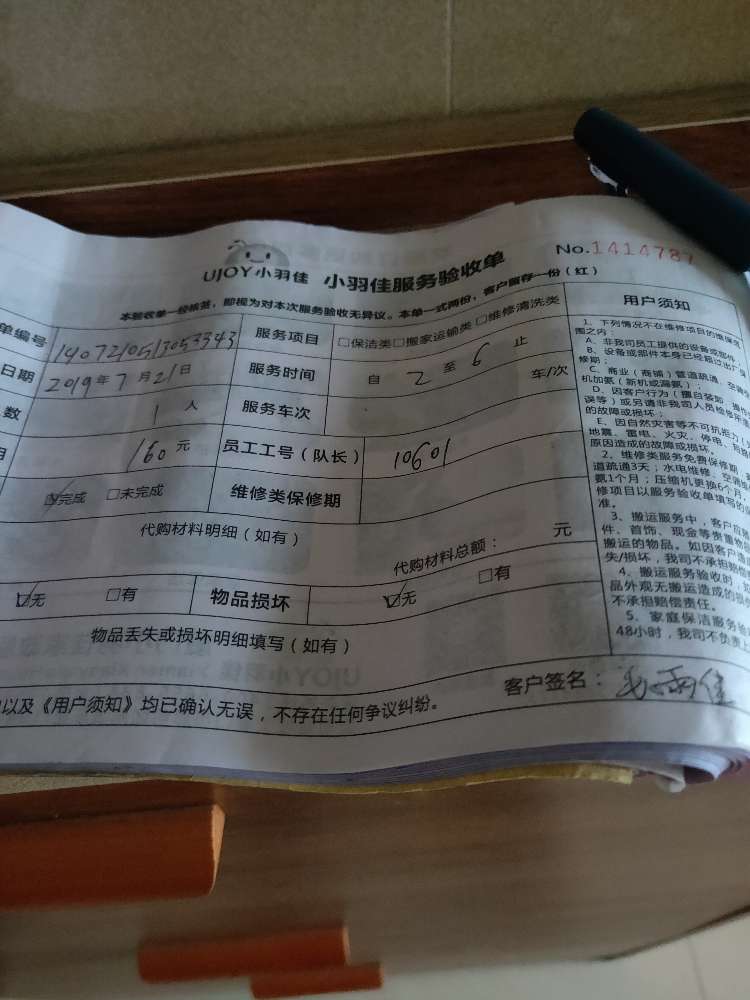 No.1414787
UJOY小羽佳 小羽佳服务验收单
本验收单一经核签，即视为对本次服务验收无异议。本单一式两份，客户留存一份（红）
单编号 服务项目 □保洁类□搬家运输类□维修清洗类
日期 2019年7月21日 服务时间 自 2 至 6 止
数 1 人 服务车次 车/次
160 元 员工工号（队长） 10601
☑完成 □未完成 维修类保修期
代购材料明细（如有） 代购材料总额： 元
☑无 □有 物品损坏 ☑无 □有
物品丢失或损坏明细填写（如有）
以及《用户须知》均已确认无误，不存在任何争议纠纷。 客户签名：
用户须知
1、下列情况不在维修项目的维保范
围之内：
A、非我司员工提供的设备或部件
B、设备或部件本身已经超过出厂保
修期；
C、商业（商铺）管道疏通、空调
机加氨（新机或漏氨）；
D、因客户行为（擅自装卸、操作
误等）或另请非我司人员检修所造
的故障或损坏；
E、因自然灾害等不可抗拒力
地震、雷电、火灾、停电
原因造成的故障或损坏。
2、维修类服务免费保修期
道疏通3天；水电维修、空调
氨1个月；压缩机更换6个月
修项目以服务验收单填写的
准。
3、搬运服务中，客户应
件、首饰、现金等贵重物
搬运的物品。如因客户
失/损坏，我司不承担赔
4、搬运服务验收时，
品外观无搬运造成的
不承担赔偿责任。
5、家庭保洁服务验
48小时，我司不负责